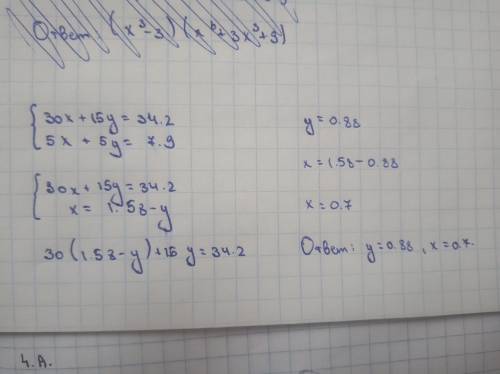 Ответ (x³-3)(x⁶+3x³+9)
30x+15y=34.2
5x+5y=7.9
30x+15y=34.2
x=1.58-y
30(1.58-y)+15y=34.2
y=0.88
x=1.58-0.88
x=0.7
Ответ: y=0.88, x=0.7.
4.A.